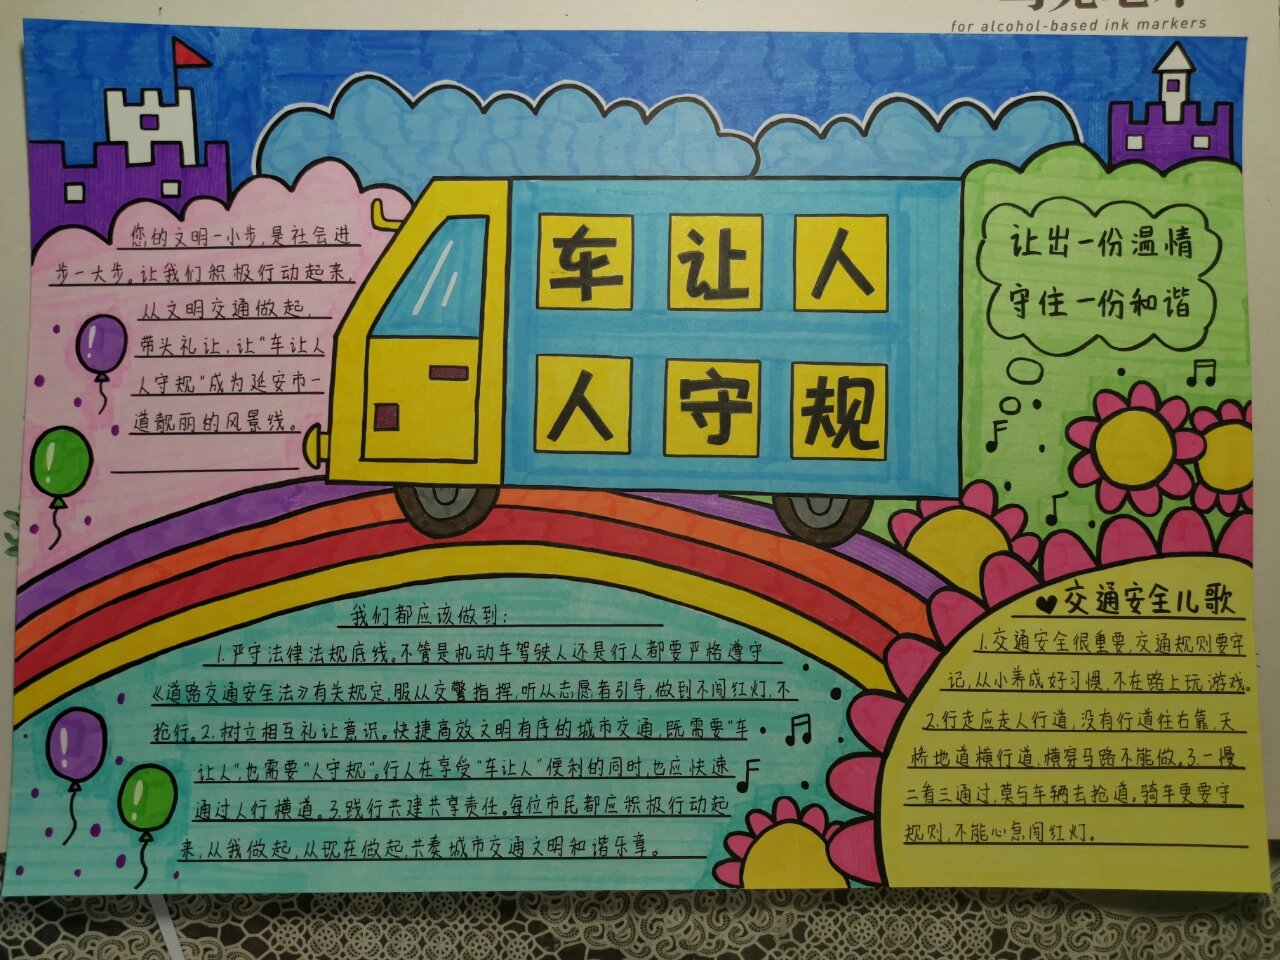 for alcohol-based ink markers
您的文明一小步,是社会进
步一大步。让我们积极行动起来,
从文明交通做起,
带头礼让,让"车让人
人守规"成为延安市一
道靓丽的风景线。
车让人
人守规
让出一份温情
守住一份和谐
我们都应该做到:
1.严守法律法规底线。不管是机动车驾驶人还是行人都要严格遵守
《道路交通安全法》有关规定,服从交警指挥,听从志愿者引导,做到不闯红灯,不
抢行。2.树立相互礼让意识。快捷高效文明有序的城市交通,既需要"车
让人",也需要"人守规"。行人在享受"车让人"便利的同时,也应快速
通过人行横道。3.践行共建共享责任。每位市民都应积极行动起
来,从我做起,从现在做起,共奏城市交通文明和谐乐章。
交通安全儿歌
1.交通安全很重要,交通规则要牢
记,从小养成好习惯,不在路上玩游戏。
2.行走应走人行道,没有行道往右靠,天
桥地道横行道,横穿马路不能做。3.一慢
二看三通过,莫与车辆去抢道。骑车更要守
规则,不能心急闯红灯。